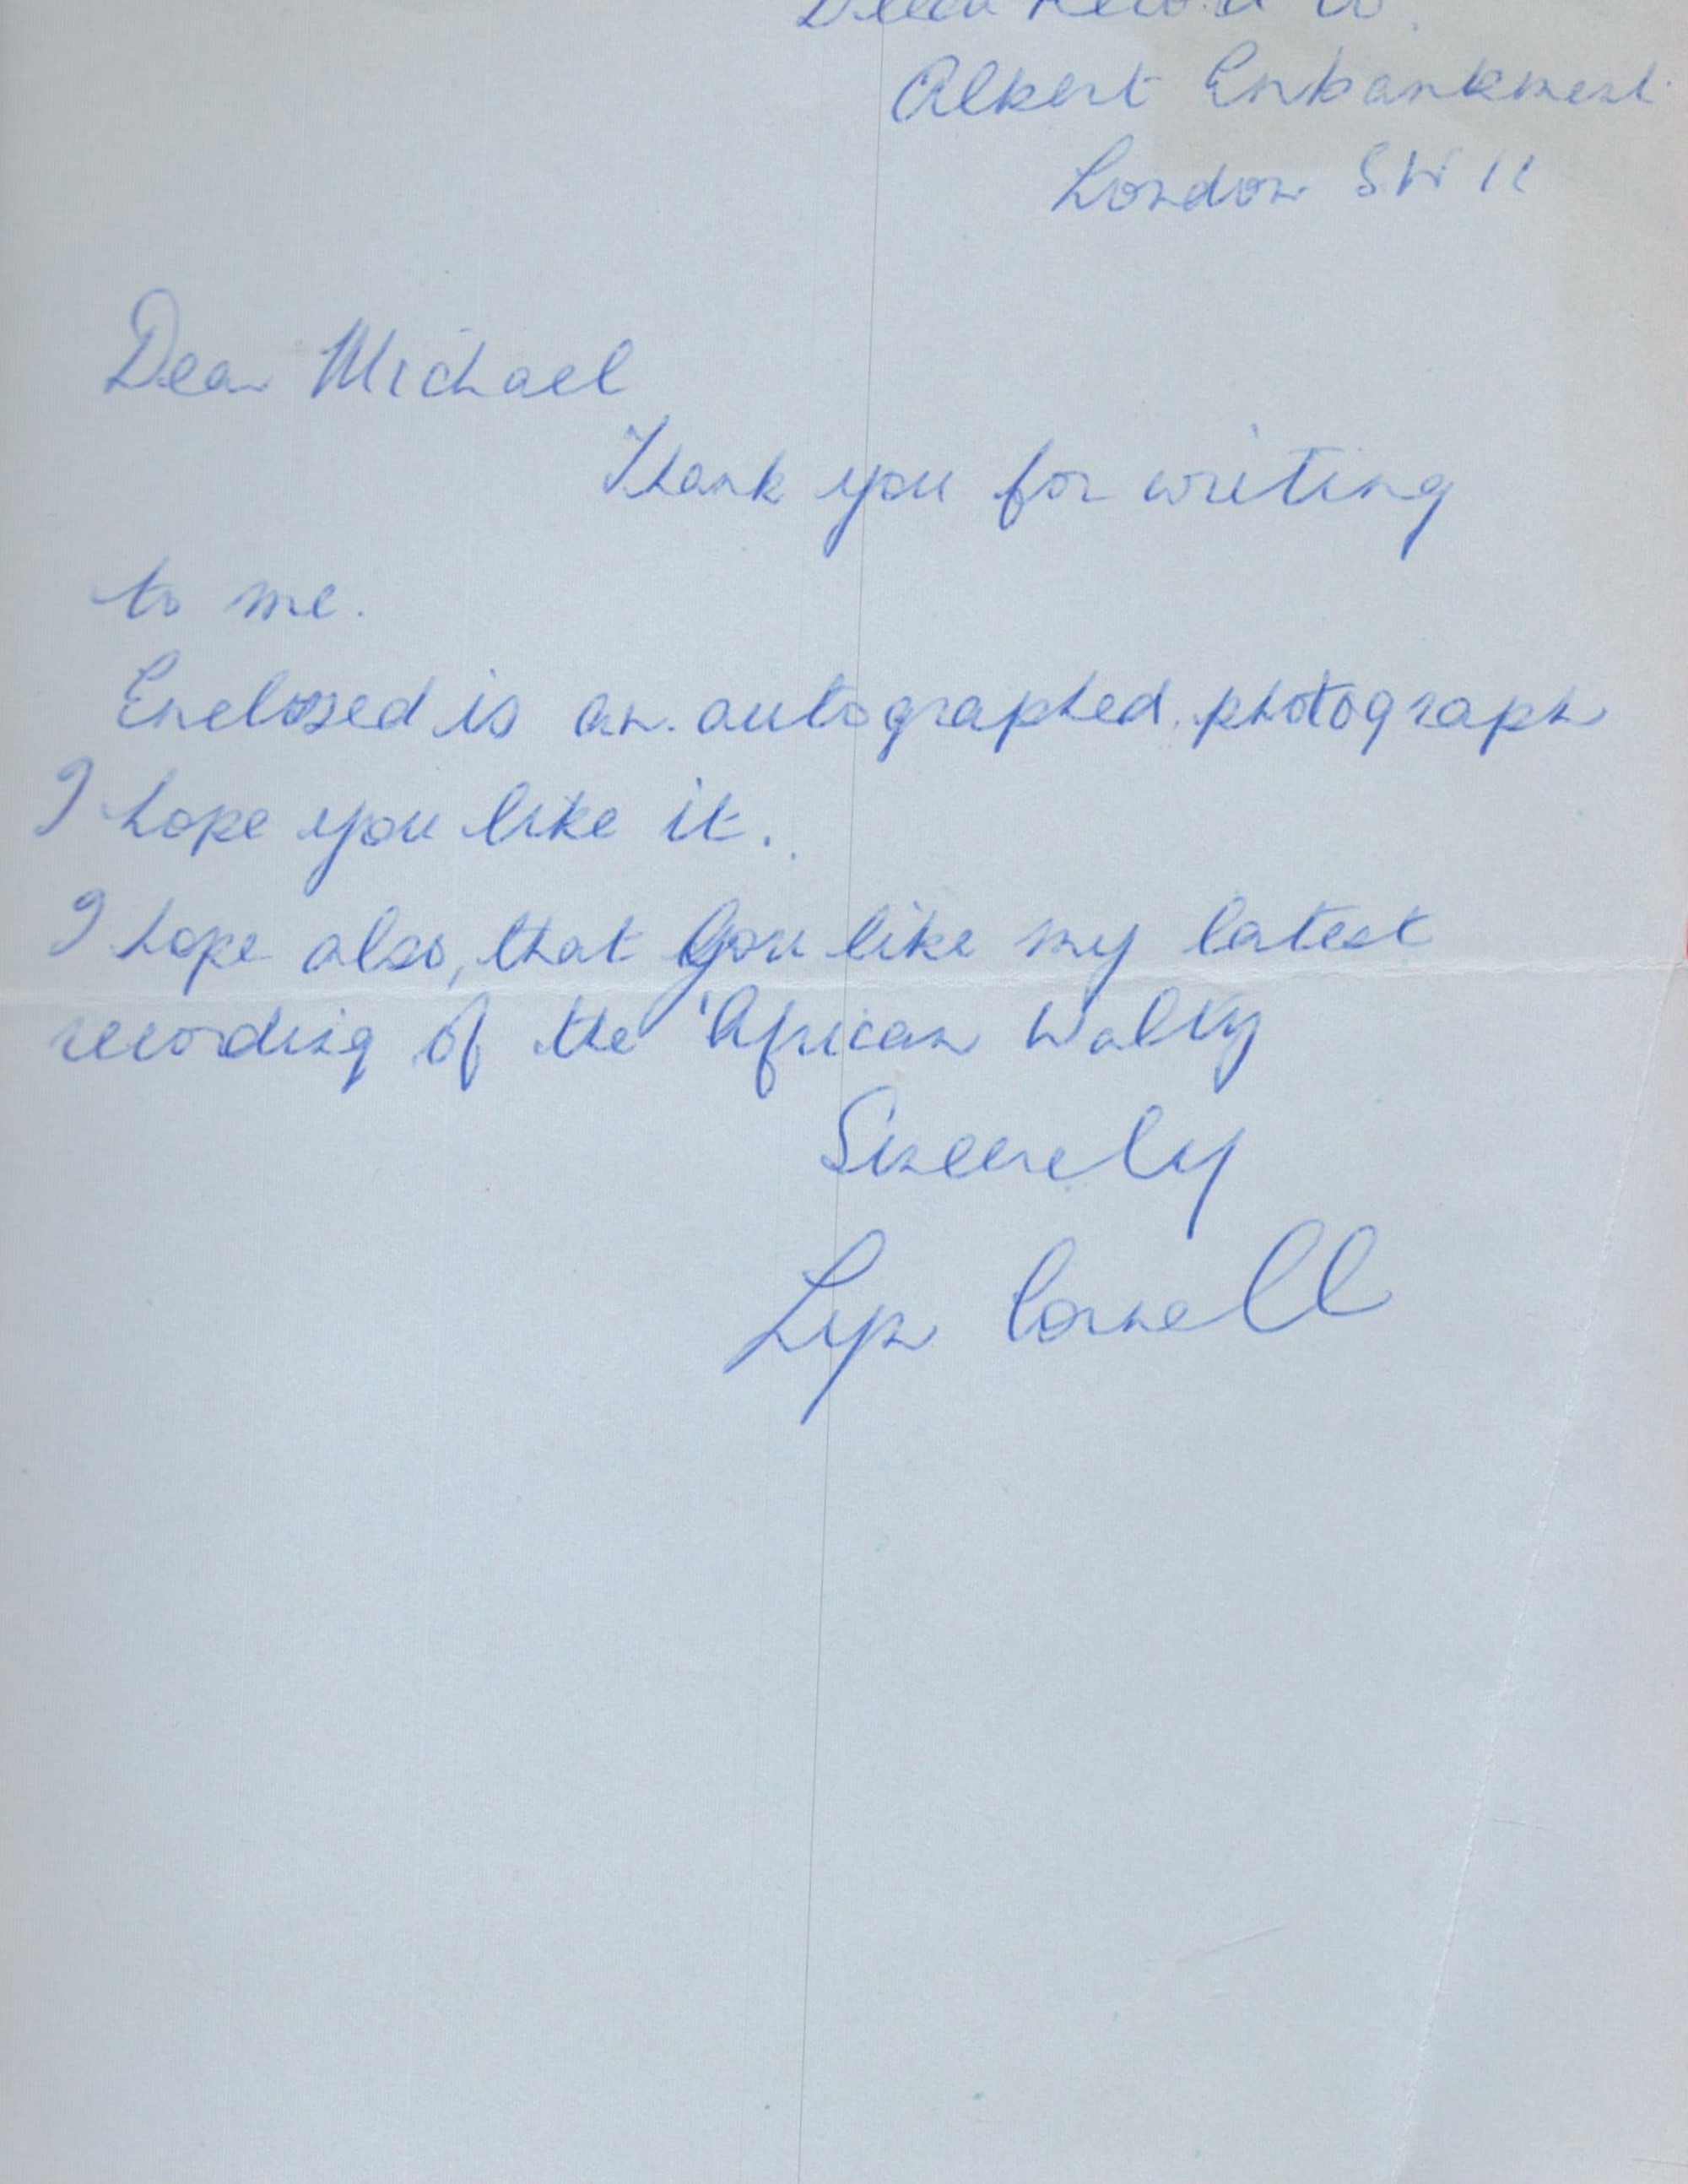 Decca Record Co.
Albert Embankment.
London SW 11
Dear Michael
Thank you for writing
to me.
Enclosed is an autographed photograph
I hope you like it.
I hope also, that you like my latest
recording of the 'African Waltz
Sincerely
Lyn Cornell